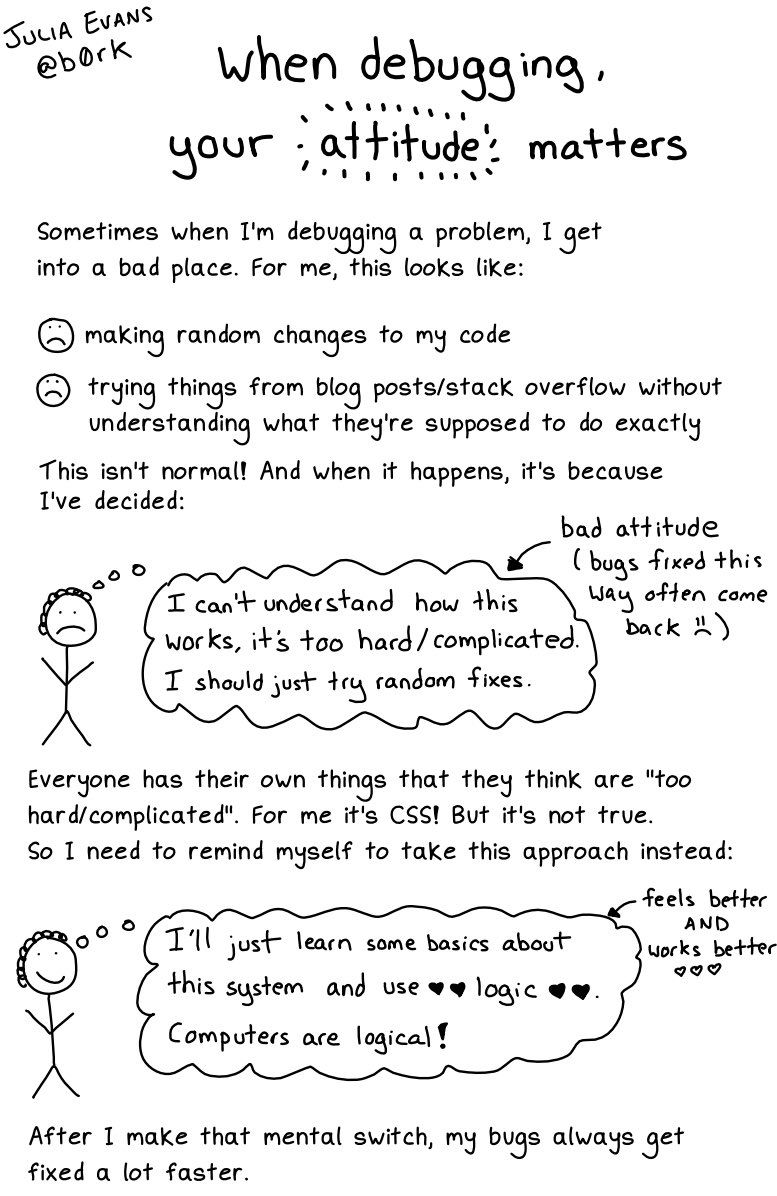 JULIA EVANS
@b0rk
When debugging,
your attitude matters
Sometimes when I'm debugging a problem, I get
into a bad place. For me, this looks like:
making random changes to my code
trying things from blog posts/stack overflow without
understanding what they're supposed to do exactly
This isn't normal! And when it happens, it's because
I've decided:
bad attitude
(bugs fixed this
way often come
back )
I can't understand how this
works, it's too hard/complicated.
I should just try random fixes.
Everyone has their own things that they think are "too
hard/complicated". For me it's CSS! But it's not true.
So I need to remind myself to take this approach instead:
feels better
AND
works better
♡♡♡
I'll just learn some basics about
this system and use ♥♥ logic ♥♥.
Computers are logical!
After I make that mental switch, my bugs always get
fixed a lot faster.